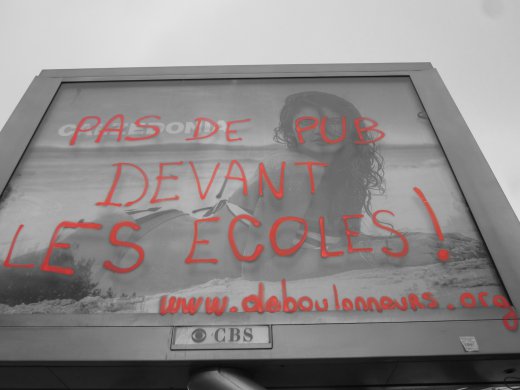 CALZEDONIA
PAS DE PUB
DEVANT
LES ECOLES !
www.deboulonneurs.org
CBS